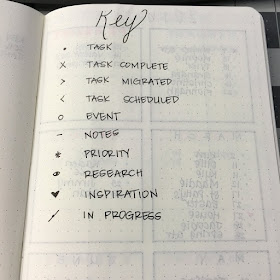 Key
• TASK
X TASK COMPLETE
> TASK MIGRATED
< TASK SCHEDULED
O EVENT
– NOTES
* PRIORITY
👁 RESEARCH
♥ INSPIRATION
/ IN PROGRESS